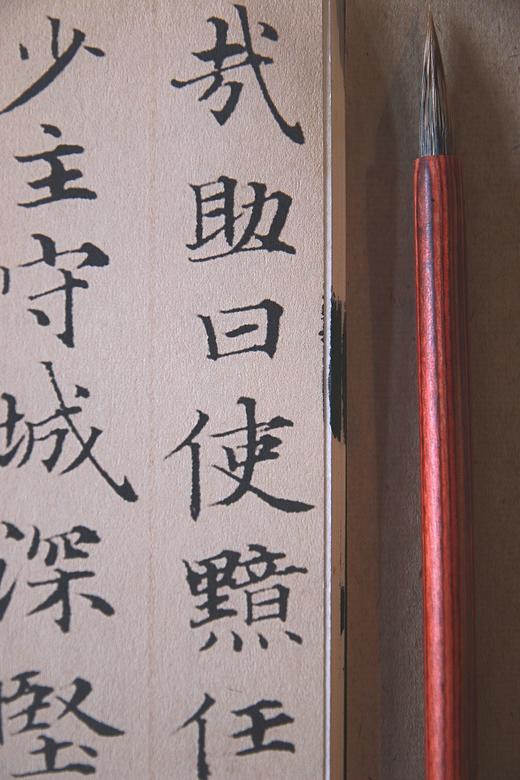 哉助曰使黯任
少主守城深堅